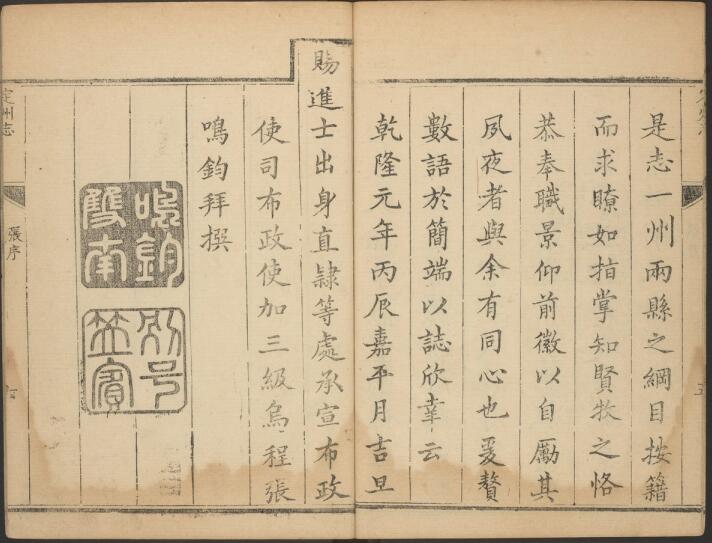 是志一州兩縣之綱目按籍
而求瞭如指掌知賢牧之恪
恭奉職景仰前徽以自勵其
夙夜者與余有同心也爰贅
數語於簡端以誌欣幸云
乾隆元年丙辰嘉平月吉旦
賜進士出身直隸等處承宣布政
使司布政使加三級烏程張
鳴鈞拜撰
鳴鈞
雙南
別号
笠賓
定州志
張序